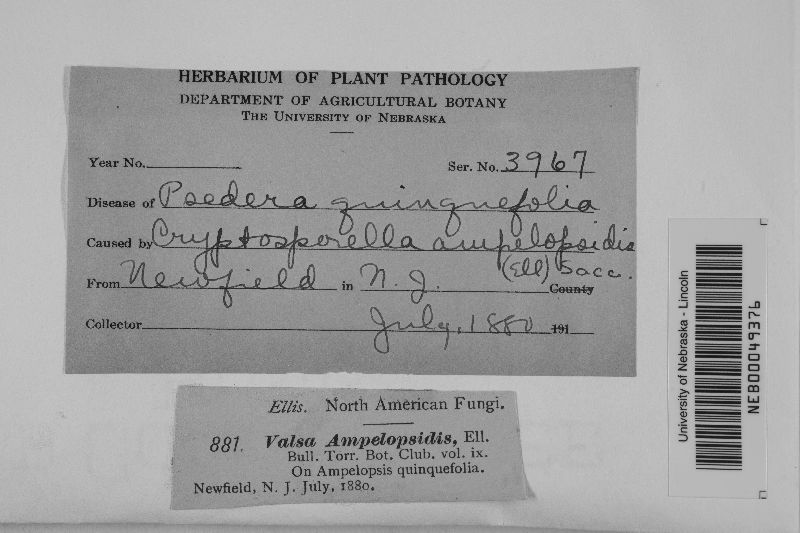 HERBARIUM OF PLANT PATHOLOGY
DEPARTMENT OF AGRICULTURAL BOTANY
THE UNIVERSITY OF NEBRASKA
Year No. Ser. No. 3967
Disease of Psedera quinquefolia
Caused by Cryptosporella ampelopsidis
(Ell) Sacc.
From Newfield in N. J. County
Collector July, 1880 191
Ellis. North American Fungi.
881. Valsa Ampelopsidis, Ell.
Bull. Torr. Bot. Club. vol. ix.
On Ampelopsis quinquefolia.
Newfield, N. J. July, 1880.
University of Nebraska - Lincoln
NEB00049376